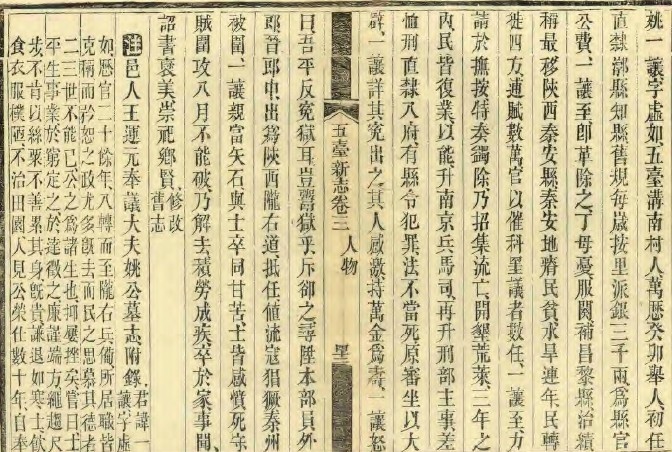 姚一讓字虛如五臺溝南村人萬歷癸卯舉人初任
直隸潡縣知縣舊規每歲按里派銀三千兩爲縣官
公費一讓至卽革除之丁母憂服闋補昌黎縣治績
稱最移陝西泰安縣秦安地瘠民貧水旱連年民轉
徙四方逋賦數萬官以催科罣議者數任一讓至力
請於撫按特奏蠲除乃招集流亡開墾荒萊三年之
內民皆復業以能升南京兵馬司再升刑部主事差
恤刑直隸八府有縣令犯罪法不當死原審坐以大
辟一讓詳其寃出之其人感激持萬金爲壽一讓怒
五臺新志卷三 人物 
曰吾平反寃獄耳豈鬻獄乎斥却之尋陞本部員外
郎晉郎中出爲陝西隴右道抵任値流寇猖獗秦州
被圍一讓親當矢石與士卒同甘苦士皆感憤死守
賊圍攻八月不能破乃解去積勞成疾卒於家事聞
詔書褒美崇祀鄉賢 修改舊志
注邑人王運元奉議大夫姚公墓志附錄 君諱一讓字虛
如歷官二十餘年八轉而至隴右兵備所居職皆
克稱而矜恕之政尤多旣去而民之思慕其德者
二三世不能已公之爲諸生也抑屢挫矣嘗曰士
平生事業於窮定之於達徵之廉謹端方繩趨尺
步不肯以絲粟不善累其身旣貴謙退如寒士飮
食衣服樸陋不治田園人見公榮仕數十年自奉